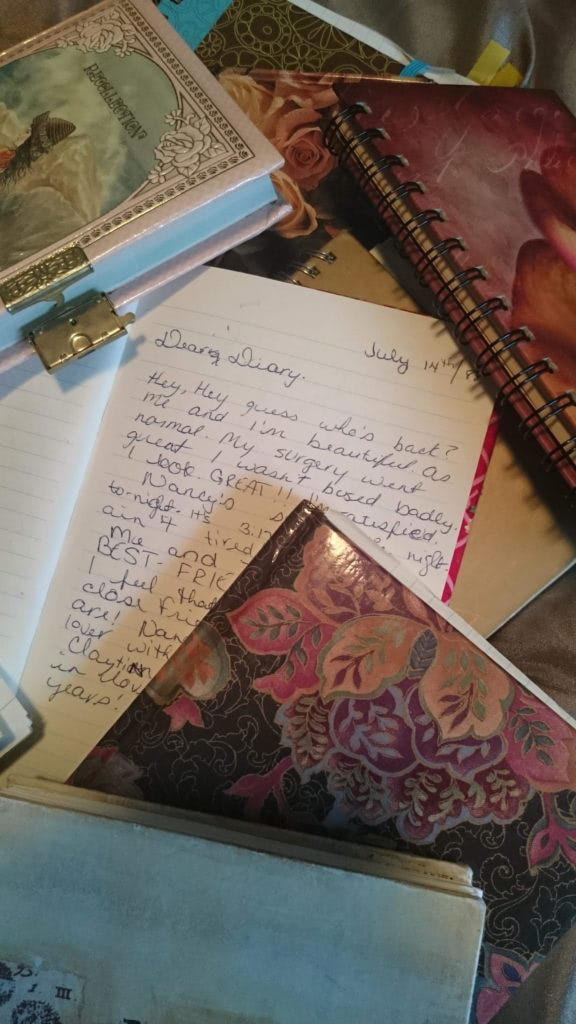 RECOLLECTION
July 14th/8
Dear Diary.
Hey, Hey guess who's back?
me and I'm beautiful as
normal. My surgery went
great I wasn't bused badly.
I look GREAT!! I'm satisfied.
Nancy's night
to-night. It's 3:1
ain't tired
Me and
BEST-FRIE
I feel that
close frie
are! Nan
lover with
Clayton
in lov
years!
III